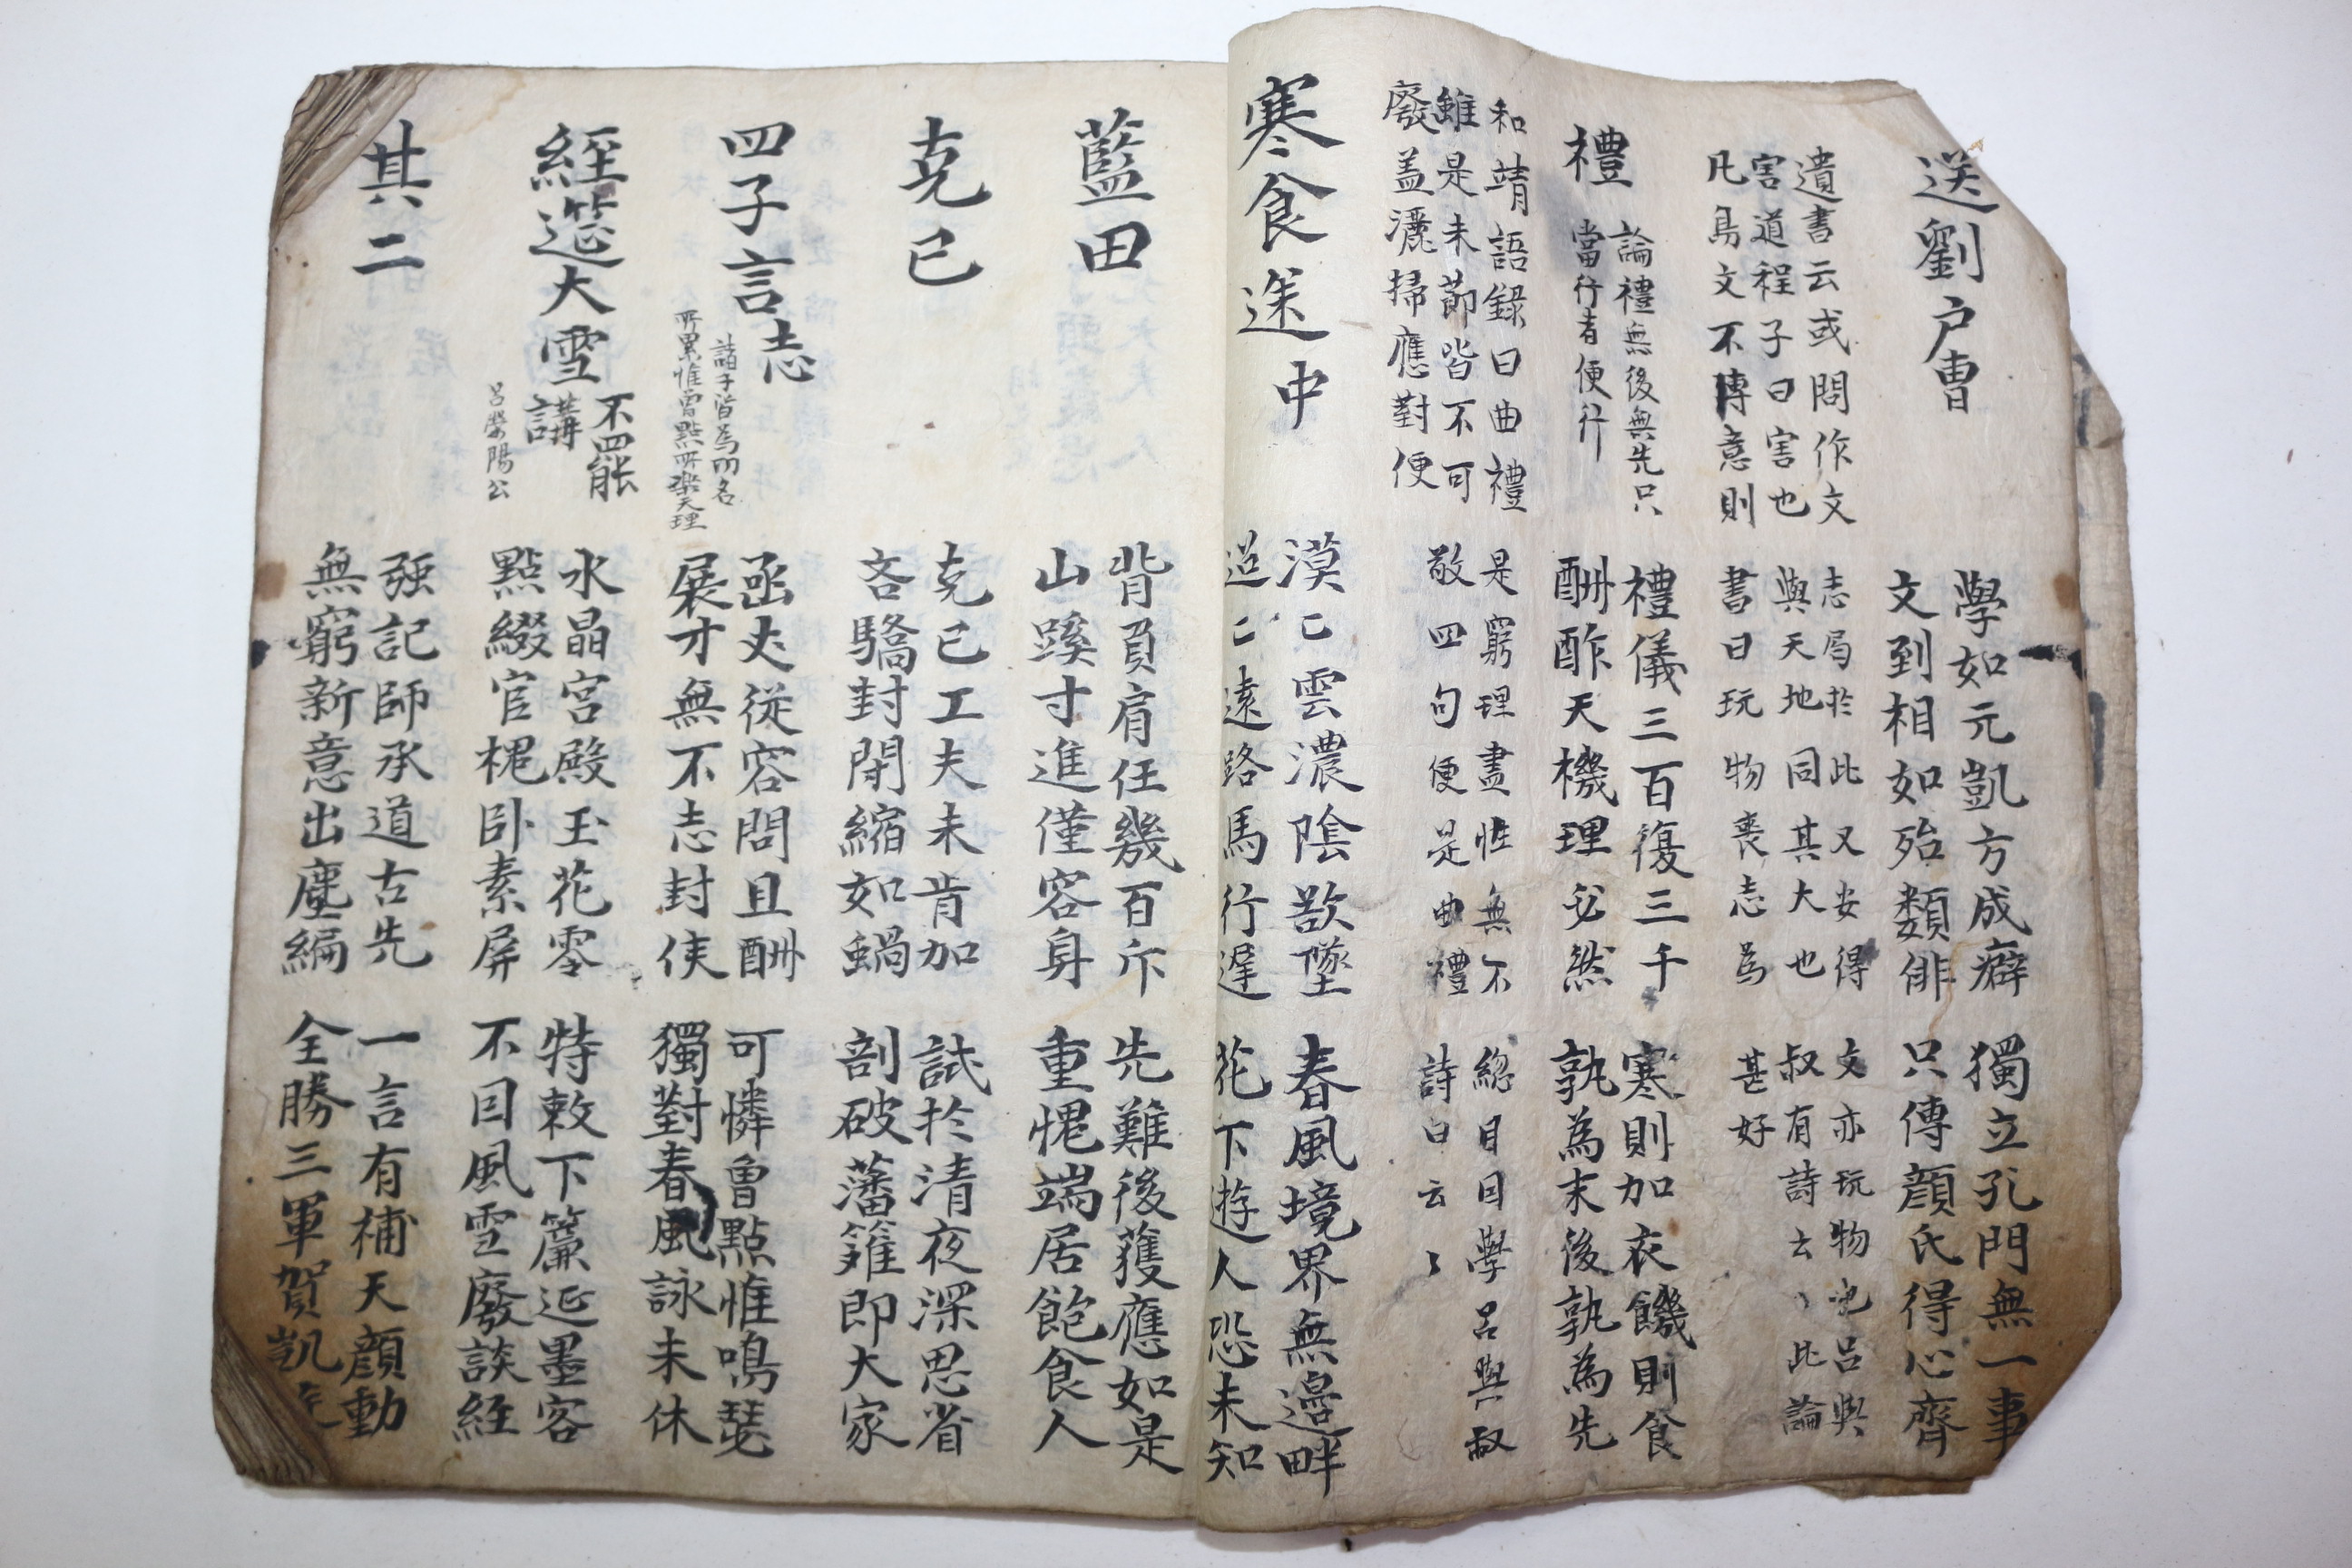 送劉戶曹
學如元凱方成癖　獨立孔門無一事
文到相如殆類俳　只傳顔氏得心齊
遺書云或問作文
害道程子曰害也
凡爲文不傳意則
志局於此又安得
與天地同其大也
書曰玩物喪志爲
文亦玩物也呂與
叔有詩云〻此論
甚好
禮
論禮無後無先只
當行者便行
禮儀三百復三千　寒則加衣饑則食
酬酢天機理必然　孰為末後孰為先
和靖語錄曰曲禮
雖是末節皆不可
廢盖灑掃應對便
是窮理盡性無不
敬四句便是曲禮
總目目學呂與叔
詩曰云〻
寒食途中
漠〻雲濃陰欲墜　春風境界無邊畔
迢〻遠路馬行遲　花下遊人恐未知
藍田
背負肩任幾百斤　先難後獲應如是
山蹊寸進僅容身　重愧端居飽食人
克己
克己工夫未肯加　試於清夜深思省
吝驕封閉縮如蝸　剖破藩籬即大家
四子言志
諸子皆爲功名
所累惟曾點所樂天理
函丈從容問且酬　可憐曾點惟鳴瑟
展才無不志封侯　獨對春風詠未休
經筵大雪不罷講
呂滎陽公
水晶宮殿玉花零　特敕下簾延墨客
點綴官槐臥素屏　不因風雪廢談經
其二
強記師承道古先　一言有補天顔動
無窮新意出塵編　全勝三軍賀凱旋